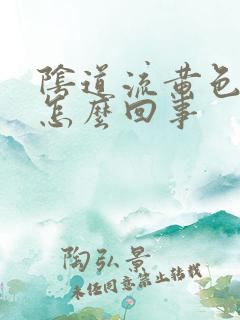 陰道流黃色
怎麼回事
陶弘景
未经同意禁止转载